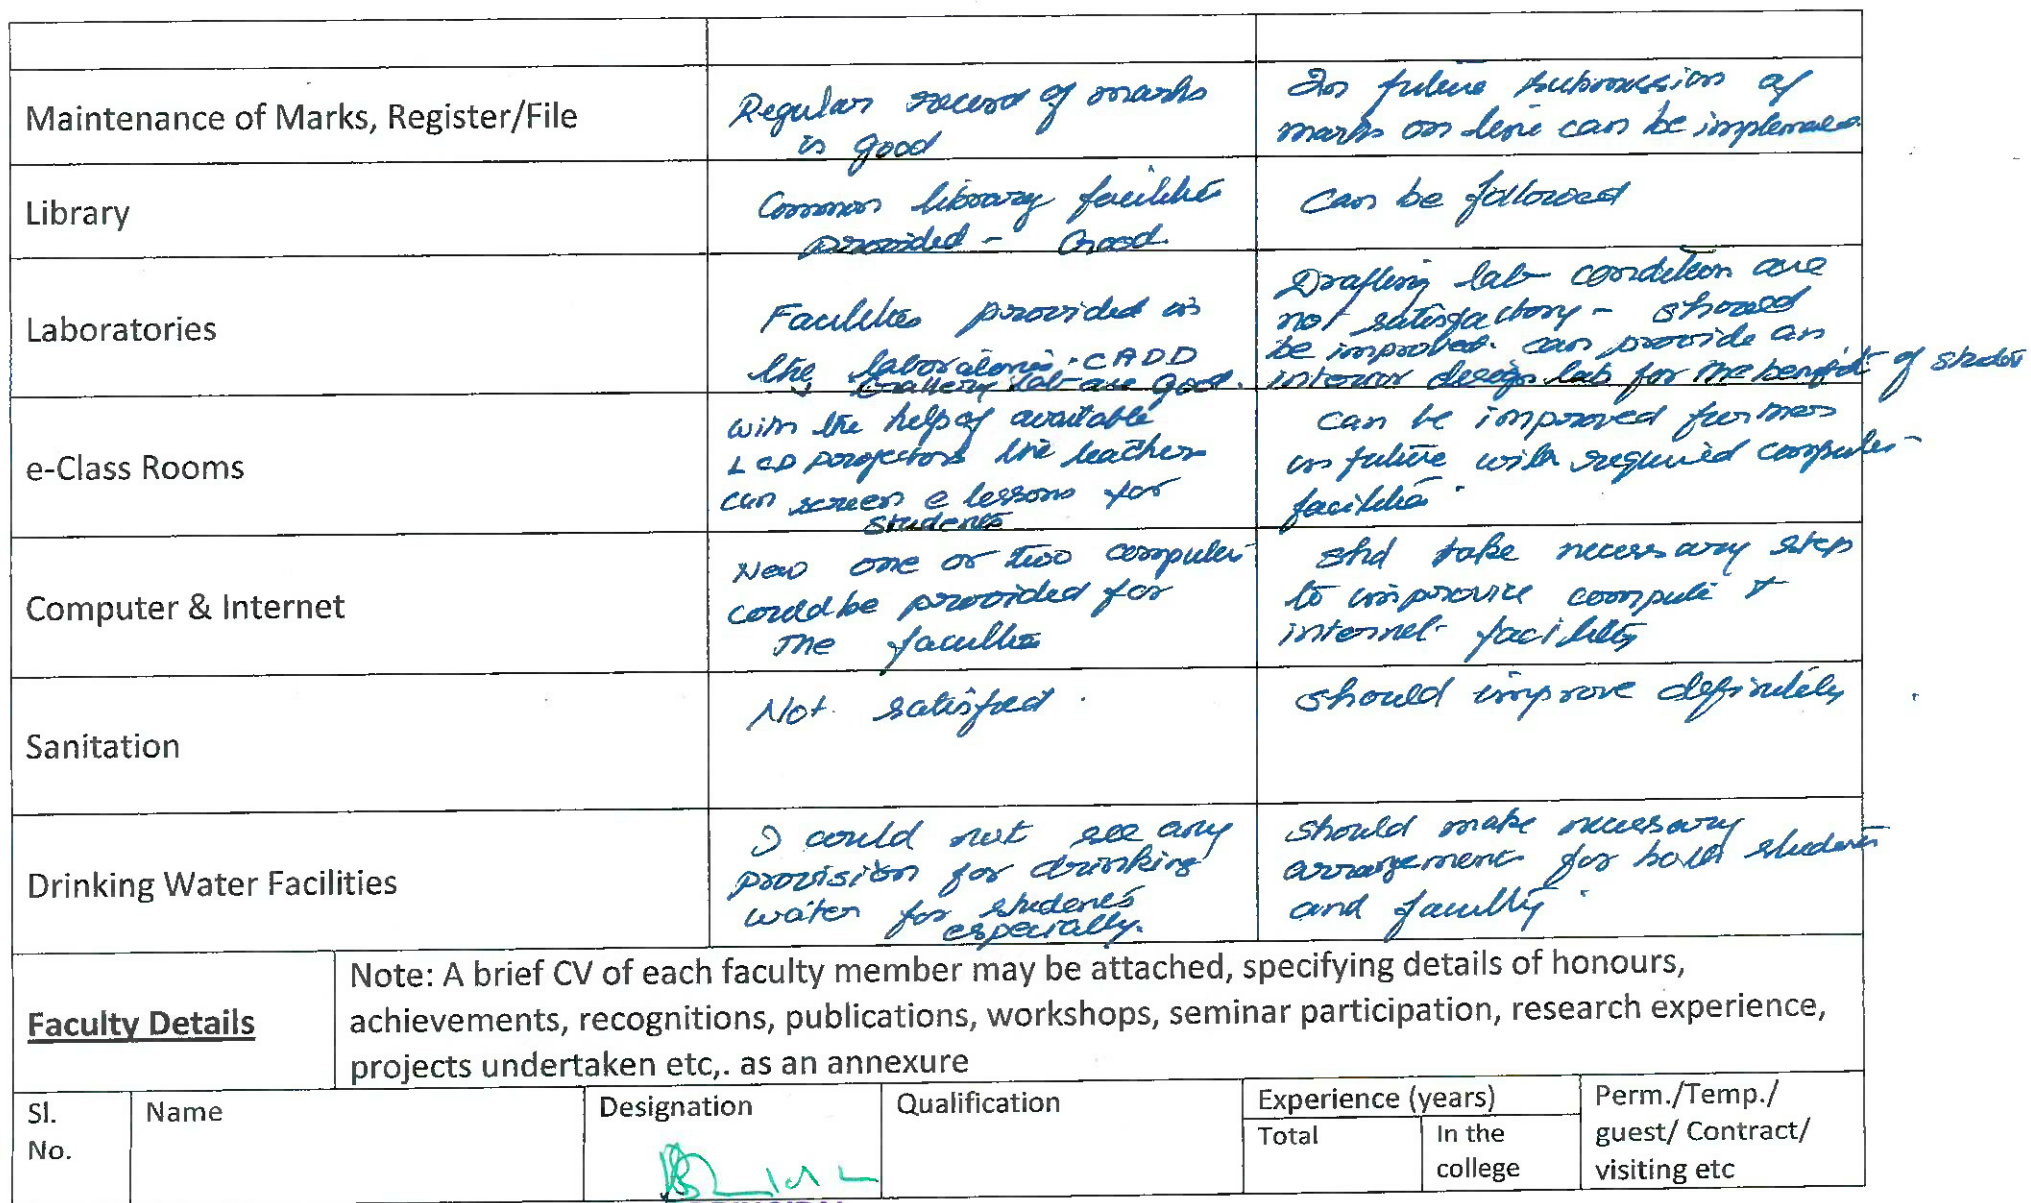 Maintenance of Marks, Register/File
Regular record of marks
is good
In future submission of
marks on line can be
Library
Common library facilities
provided - Good.
Can be followed
Laboratories
Facilities provided in
the laboratories. CADD
lab are good.
Drafting lab condition are
not satisfactory - should
be improved. can provide an
interior design lab for the benefit of
e-Class Rooms
with the help of available
LCD projectors the teacher
can screen e lessons for
students
can be improved further
in future with required computer
facilities.
Computer & Internet
New one or two computer
could be provided for
the
shd take necessary step
to improvise compute &
internet facility
Sanitation
Not satisfied.
should improve definitely
Drinking Water Facilities
I could not see any
provision for drinking
water for students
especially.
should make necessary
arrangement for both students
and faculty.
Faculty Details
Note: A brief CV of each faculty member may be attached, specifying details of honours,
achievements, recognitions, publications, workshops, seminar participation, research experience,
projects undertaken etc,. as an annexure
Sl.
No.
Name
Designation
Qualification
Experience (years)
Total
In the
college
Perm./Temp./
guest/ Contract/
visiting etc